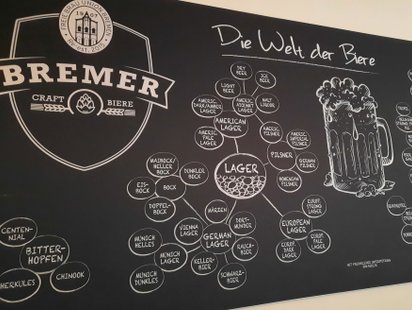 FREIE BRAU UNION BREMEN
1907
EST. 2015
BREMER
CRAFT BIERE
Die Welt der Biere
DRY BEER
ICE BEER
LIGHT BEER
MALT LIQUOR
AMERICAN LAGER
AMERIC. PALE LAGER
LAGER
PILSNER
AMERIC. PILSNER
AMERIC. IMPERIAL PILSNER
GERMAN PILSNER
BOHEMIAN PILSNER
MAIBOCK/ HELLER BOCK
DUNKLER BOCK
EIS- BOCK
BOCK
DOPPEL- BOCK
MÄRZEN
DORT- MUNDER
VIENNA LAGER
GERMAN LAGER
RAUCH- BIER
MUNICH HELLES
MUNICH LAGER
MUNICH DUNKLES
KELLER- BIER
SCHWARZ- BIER
EUROPEAN LAGER
EUROP. STRONG LAGER
EUROP. PALE LAGER
EUROP. DARK LAGER
CENTEN- NIAL
BITTER- HOPFEN
HERKULES
CHINOOK